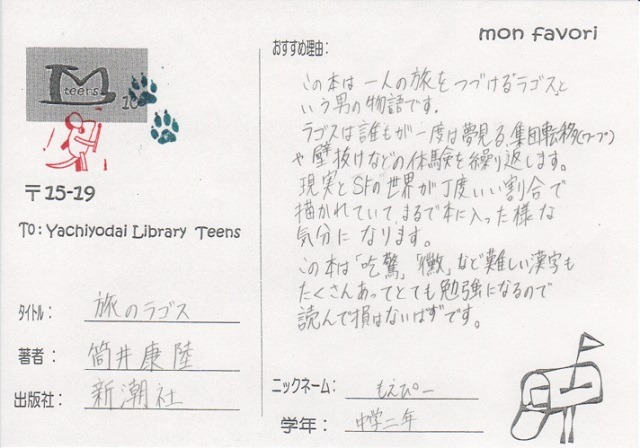 M
teens
10
〒15-19
To: Yachiyodai Library Teens
タイトル: 旅のラゴス
著者: 筒井康隆
出版社: 新潮社
mon favori
おすすめ理由:
この本は一人の旅をつづける「ラゴス」と
いう男の物語です。
ラゴスは誰もが一度は夢見る、集団転移(ワープ)
や壁抜けなどの体験を繰り返します。
現実とSFの世界が丁度いい割合で
描かれていて、まるで本に入った様な
気分になります。
この本は「吃驚」「黴」など難しい漢字も
たくさんあってとても勉強になるので
読んで損はないはずです。
ニックネーム: もえぴー
学年: 中学二年